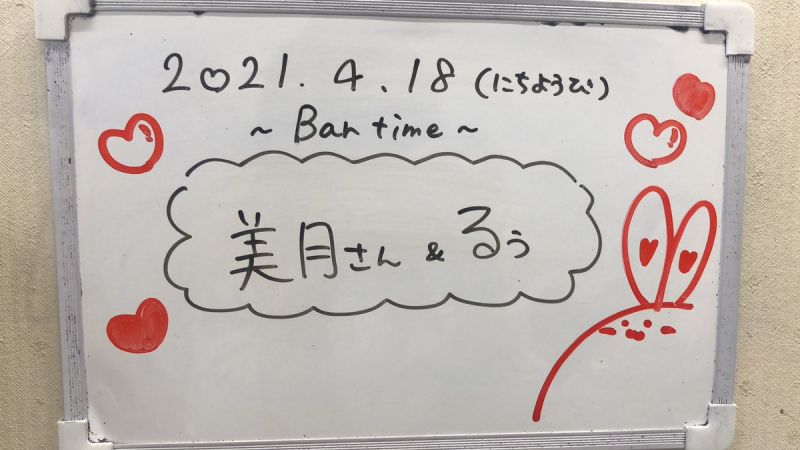 2021.4.18(にちようび)
~ Bar time ~
美月さん & るぅ